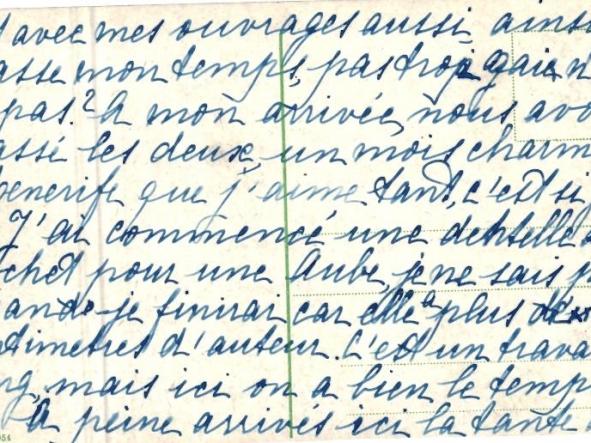 avec mes ouvrages aussi ainsi
asse mon temps, pas trop gai n
pas? A mon arrivée, nous avo
assé les deux, un mois charm
enerife que j'aime tant, c'est si
J'ai commencé une dentelle
chet pour une Aube, je ne sais
and je finirai car elle a plus de
ntimetres d'auteur. C'est un trava
ng, mais ici on a bien le temp
A peine arrivés ici la tante